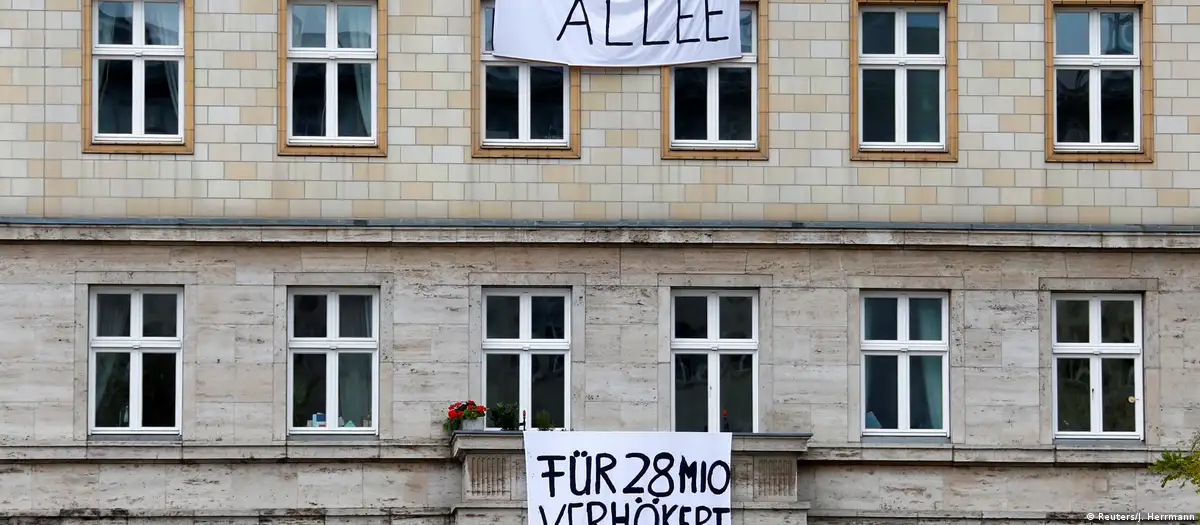 ALLEE
FÜR 28 MIO
VERHÖKERT
© Reuters/J. Herrmann